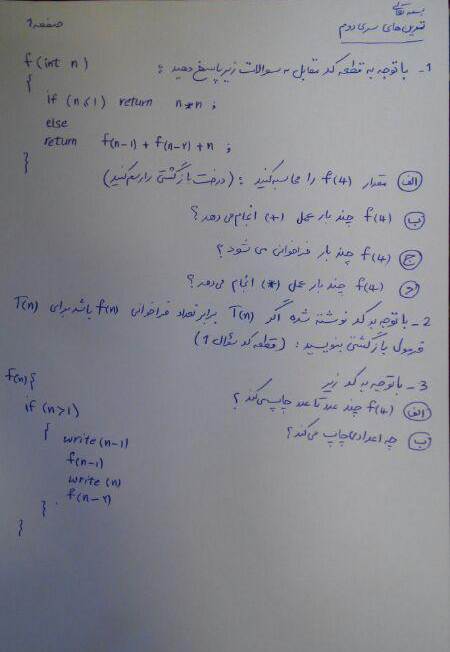 بسمه تعالی
تمرین های سری دوم
صفحه 1
1_ با توجه به قطعه کد مقابل به سوالات زیر پاسخ دهید :
f(int n)
{
if (n≤1) return n*n ;
else
return f(n-1) + f(n-۲) + n ;
}
الف مقدار f(۴) را محاسبه کنید : (درخت بازگشتی را رسم کنید)
ب f(۴) چند بار عمل (+) انجام می دهد ؟
ج f(۴) چند بار فراخوانی می شود ؟
د f(۴) چند بار عمل (*) انجام می دهد ؟
2_ با توجه به کد نوشته شده اگر T(n) برابر تعداد فراخوانی f(n) باشد برای T(n)
فرمول بازگشتی بنویسید : (قطعه کد سؤال 1)
3_ با توجه به کد زیر
الف f(۴) چند عدد تا عدد چاپ می کند ؟
ب چه اعدادی چاپ می کند ؟
f(n) {
if (n>1)
{ write(n-1)
f(n-1)
write(n)
f(n-۲)
}
}